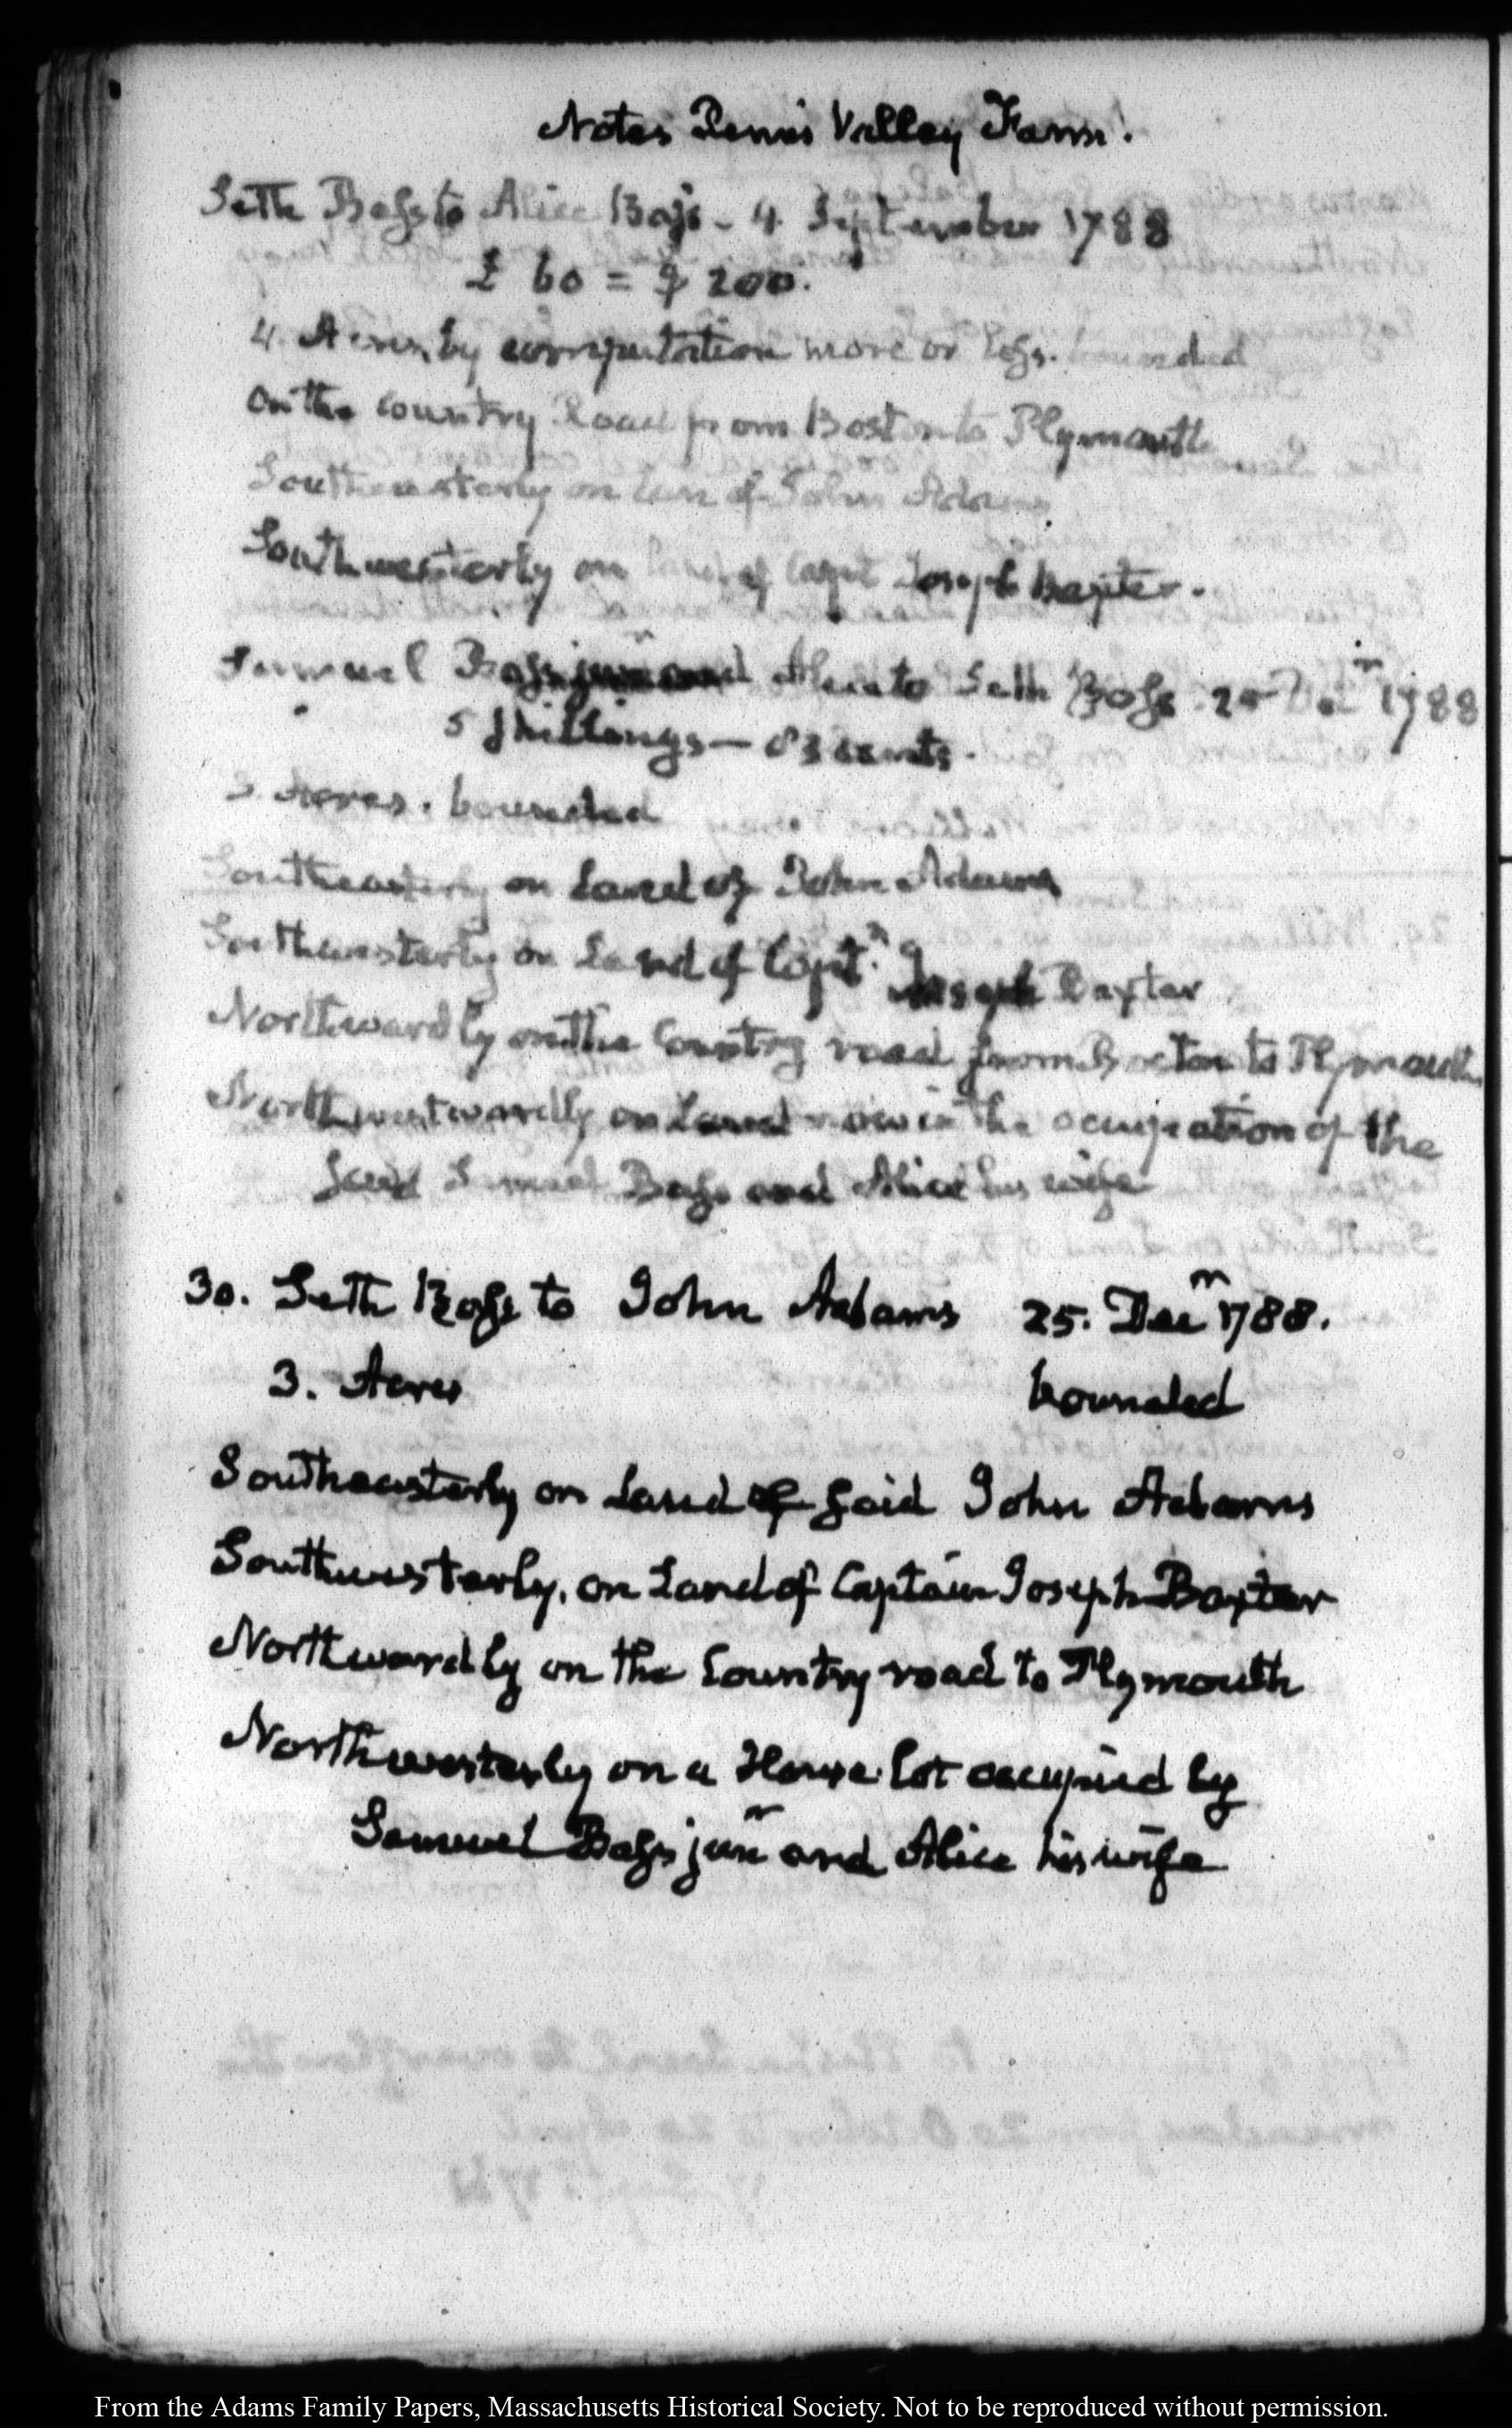 Notes Penn's Valley Farm.
Seth Bass to Alice Bass - 4. September 1788
£ 60 = $ 200.
4. Acres, by computation more or less. bounded
on the Country Road from Boston to Plymouth
Southeasterly on Lan of John Adams
Southwesterly on land of Capt Joseph Baxter.
Samuel Bass junr and Alice to Seth Bass 25 Decr 1788
5 shillings — 83 cents.
3. Acres. bounded
Southeasterly on Land of John Adams
Southwesterly on Land of Captn. Joseph Baxter
Northwardly on the Country road from Boston to Plymouth
Northwestwardly on Land now in the occupation of the
said Samuel Bass and Alice his wife
30. Seth Bass to John Adams 25. Decr 1788.
3. Acres bounded
Southeasterly on Land of said John Adams
Southwesterly, on Land of Captain Joseph Baxter
Northwardly on the Country road to Plymouth
Northwesterly on a House lot occupied by
Samuel Bass junr and Alice his wife
From the Adams Family Papers, Massachusetts Historical Society. Not to be reproduced without permission.